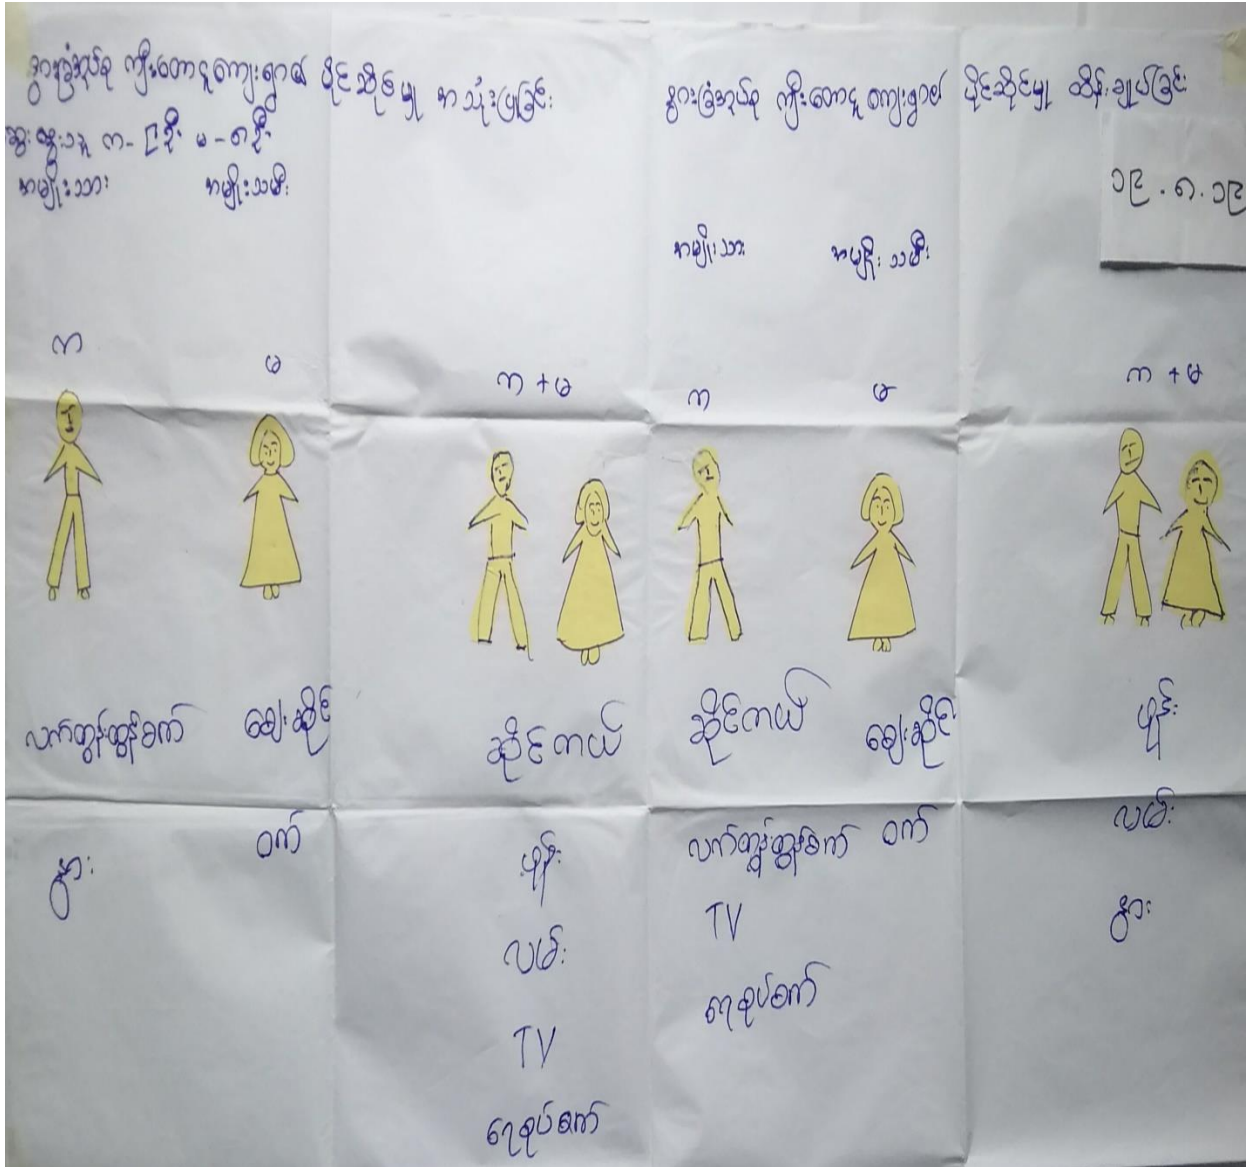 နွားခြံအုပ်စု ကျီးတောငူကျေးရွာ၏ ပိုင်ဆိုင်မှု အသုံးပြုခြင်း
ဆွေးနွေးသူ က-၉ဦး မ-၈ဦး
အမျိုးသား အမျိုးသမီး
က မ က + မ
လက်တွန်းထွန်စက် ဈေးဆိုင် ဆိုင်ကယ်
နွား ဝက် ဖုန်း
လမ်း
TV
ရေစုပ်စက်
နွားခြံအုပ်စု ကျီးတောငူကျေးရွာ၏ ပိုင်ဆိုင်မှု ထိန်းချုပ်ခြင်း
၁၉.၈.၁၉
အမျိုးသား အမျိုးသမီး
က မ က + မ
ဆိုင်ကယ် ဈေးဆိုင် ဖုန်း
လက်တွန်းထွန်စက် ဝက် လမ်း
TV နွား
ရေစုပ်စက်